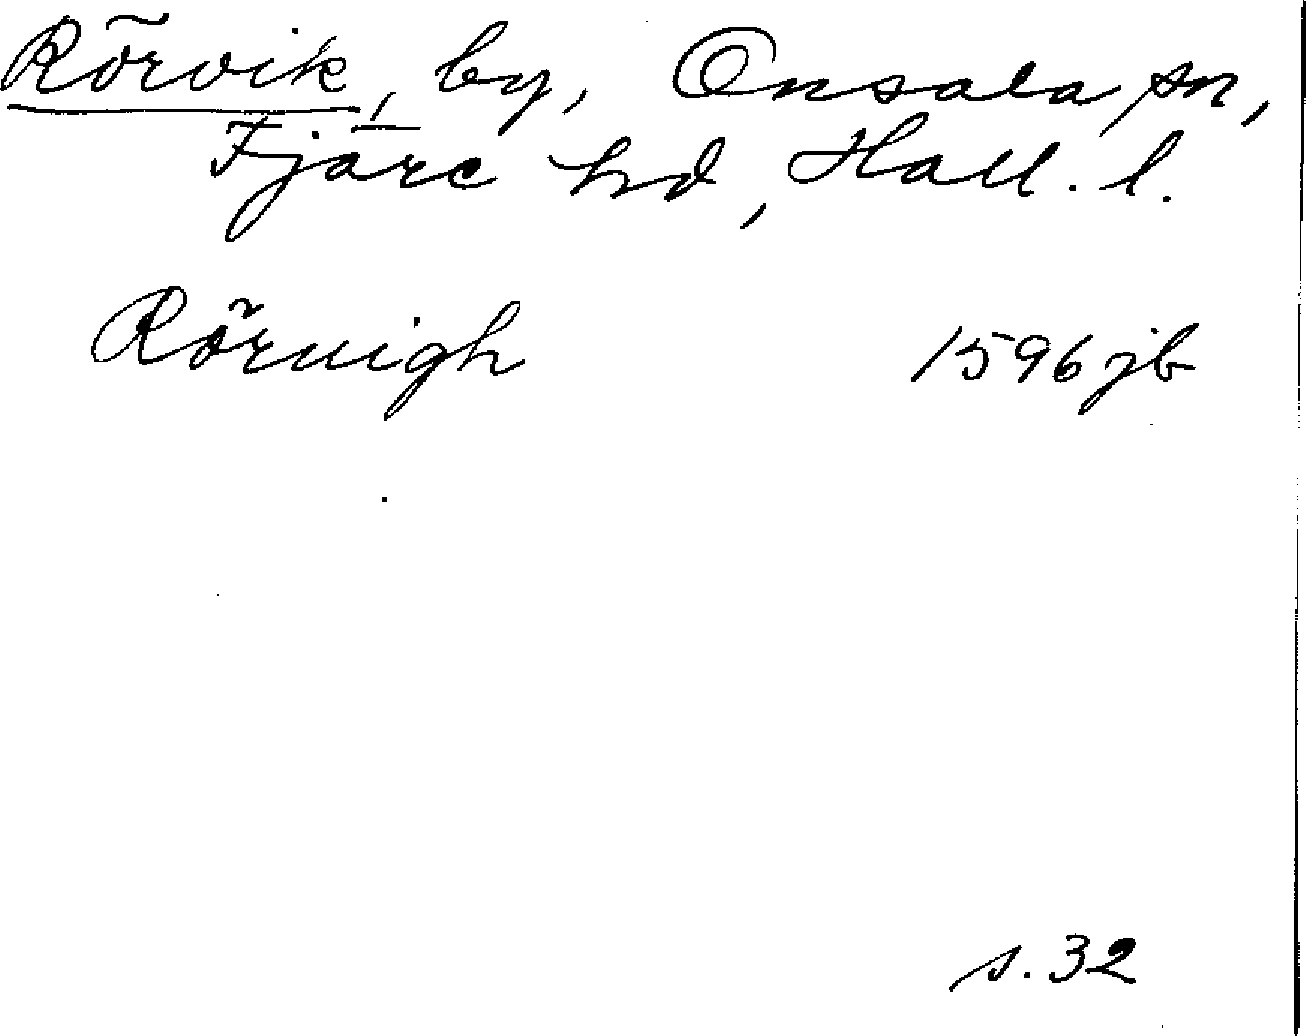 Rörvik, by, Onsala sn,
Fjäre hd, Hall. l.
Röruigh 1596 jb
s. 32